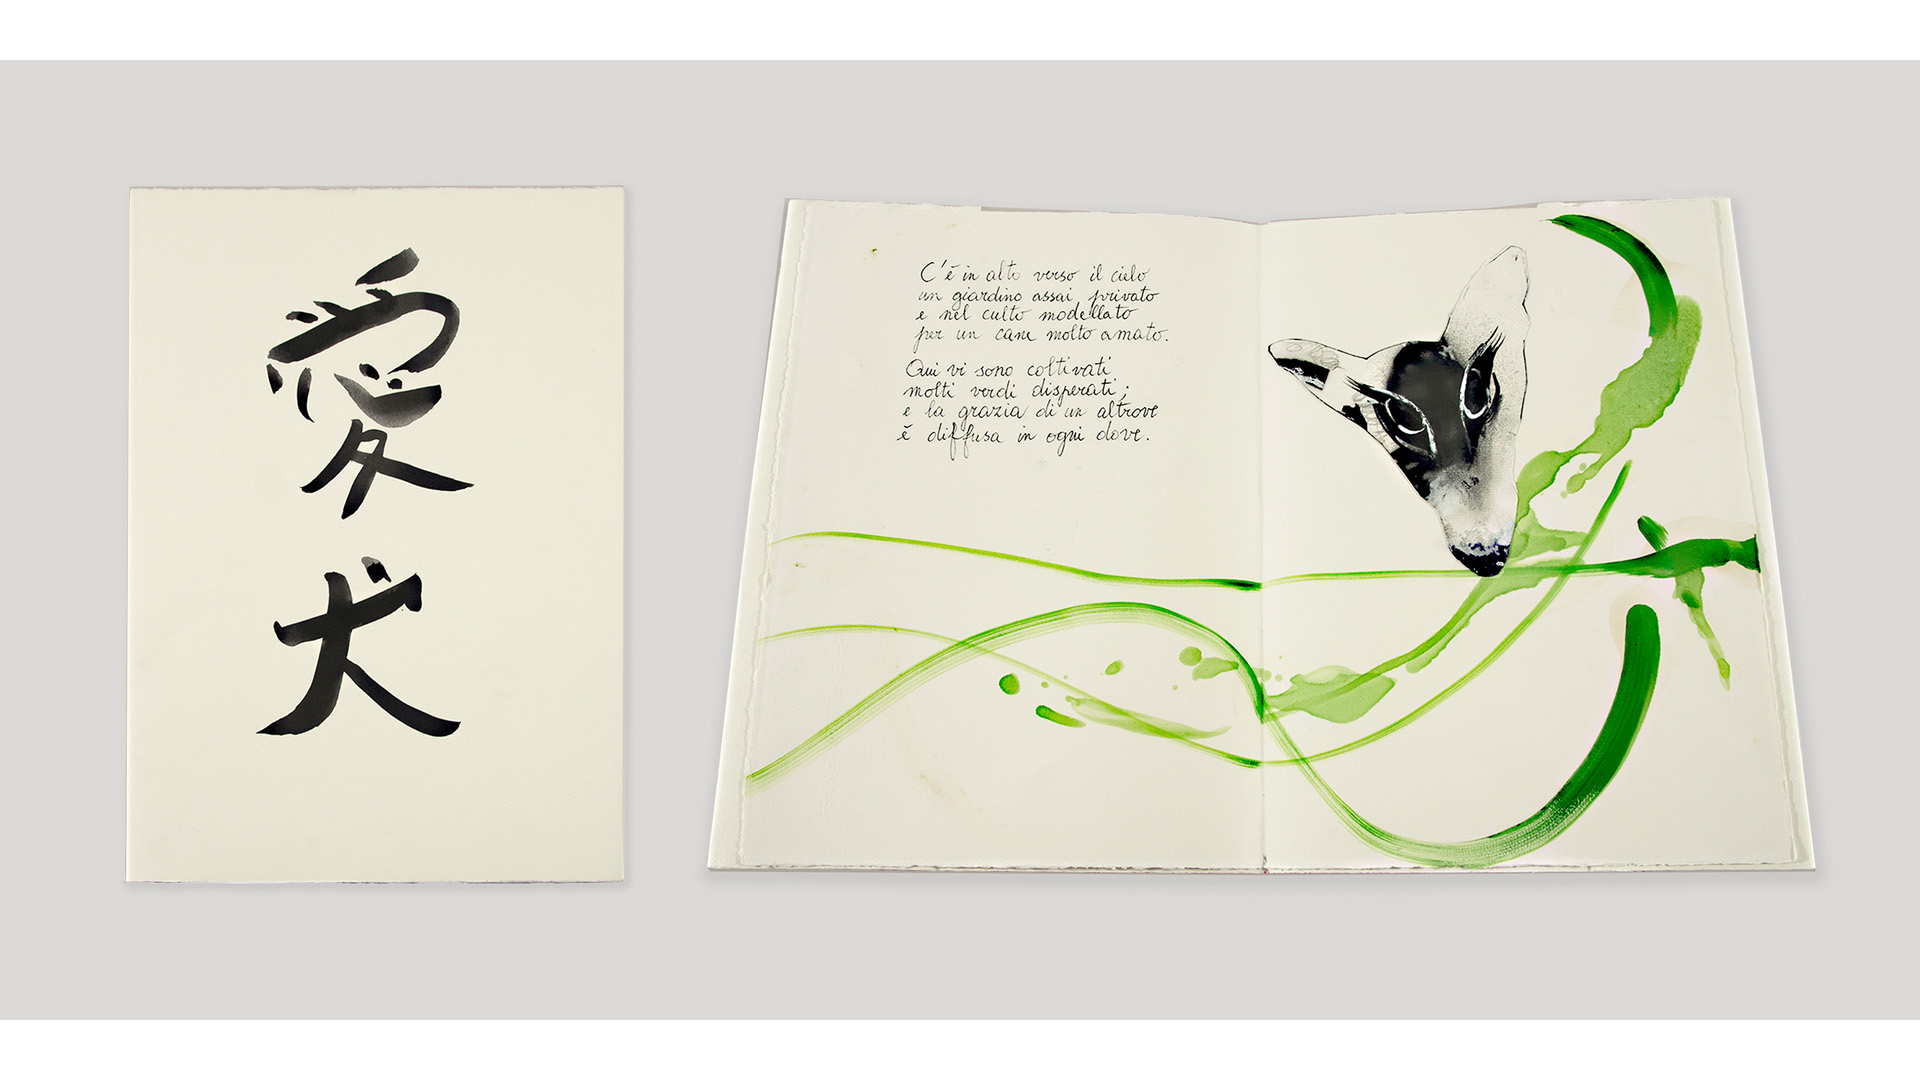 愛
犬
C'è in alto verso il cielo
un giardino assai privato
e nel culto modellato
per un cane molto amato.
Qui vi sono coltivati
molti verdi disperati;
e la grazia di un altrove
è diffusa in ogni dove.